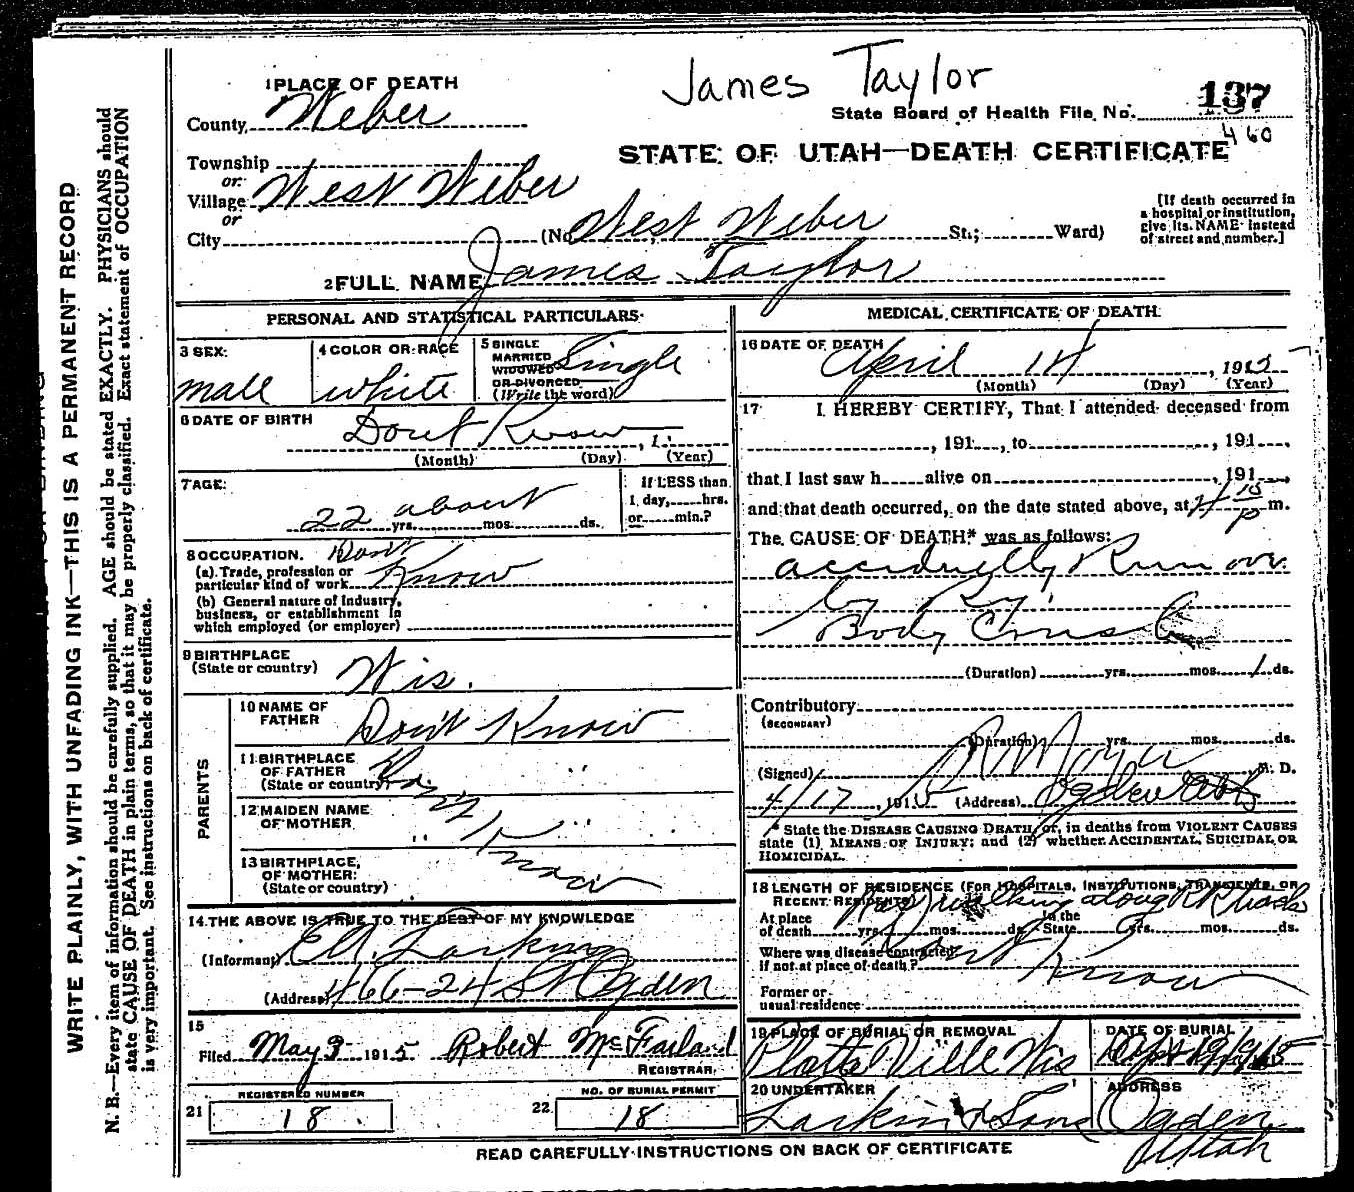 James Taylor
1 PLACE OF DEATH
County Weber
State Board of Health File No. 137
460
STATE OF UTAH—DEATH CERTIFICATE
Township
or
Village West Weber
or
City (No West Weber St.; Ward)
[If death occurred in
a hospital or institution,
give its NAME instead
of street and number.]
2 FULL NAME James Taylor
PERSONAL AND STATISTICAL PARTICULARS
3 SEX
male
4 COLOR OR RACE
white
5 SINGLE
MARRIED
WIDOWED
OR DIVORCED
(Write the word)
Single
6 DATE OF BIRTH
Dont Know , 1
(Month) (Day) (Year)
7 AGE
22 yrs. about mos. ds.
If LESS than
1 day, hrs.
or min.?
8 OCCUPATION. Dont
(a) Trade, profession or
particular kind of work Know
(b) General nature of Industry,
business, or establishment in
which employed (or employer)
9 BIRTHPLACE
(State or country) Wis.
PARENTS
10 NAME OF
FATHER Don't Know
11 BIRTHPLACE
OF FATHER
(State or country)
12 MAIDEN NAME
OF MOTHER
13 BIRTHPLACE,
OF MOTHER:
(State or country)
Know
14. THE ABOVE IS TRUE TO THE BEST OF MY KNOWLEDGE
(Informant) Larkin
(Address) 466-24 St Ogden
15
Filed May 3 1915 Robert McFarland
REGISTRAR
REGISTERED NUMBER
21 18
NO. OF BURIAL PERMIT
22 18
MEDICAL CERTIFICATE OF DEATH
16 DATE OF DEATH
April 14 , 1915
(Month) (Day) (Year)
17 I HEREBY CERTIFY, That I attended deceased from
, 191 , to , 191 ,
that I last saw h alive on , 191 ,
and that death occurred, on the date stated above, at m.
The CAUSE OF DEATH* was as follows:
accidentally Run over
by Ry.
Body Crush
(Duration) yrs. mos. 1 ds.
Contributory
(SECONDARY)
(Duration) yrs. mos. ds.
(Signed) M. D.
4/17, 1915 (Address) Ogden Utah
* State the DISEASE CAUSING DEATH, or, in deaths from VIOLENT CAUSES
state (1) MEANS OF INJURY; and (2) whether ACCIDENTAL, SUICIDAL OR
HOMICIDAL.
18 LENGTH OF RESIDENCE (FOR HOSPITALS, INSTITUTIONS, TRANSIENTS, OR
RECENT RESIDENTS) walking along RR track
At place
of death yrs. mos. ds. In the
State yrs. mos. ds.
Where was disease contracted
if not at place of death? Dont Know
Former or
usual residence
19 PLACE OF BURIAL OR REMOVAL
Platte Ville Wis
DATE OF BURIAL
20 UNDERTAKER
Larkin & Sons
ADDRESS
Ogden
Utah
READ CAREFULLY INSTRUCTIONS ON BACK OF CERTIFICATE
WRITE PLAINLY, WITH UNFADING INK—THIS IS A PERMANENT RECORD
N. B.—Every item of information should be carefully supplied. AGE should be stated EXACTLY. PHYSICIANS should
state CAUSE OF DEATH in plain terms, so that it may be properly classified. Exact statement of OCCUPATION
is very important. See instructions on back of certificate.